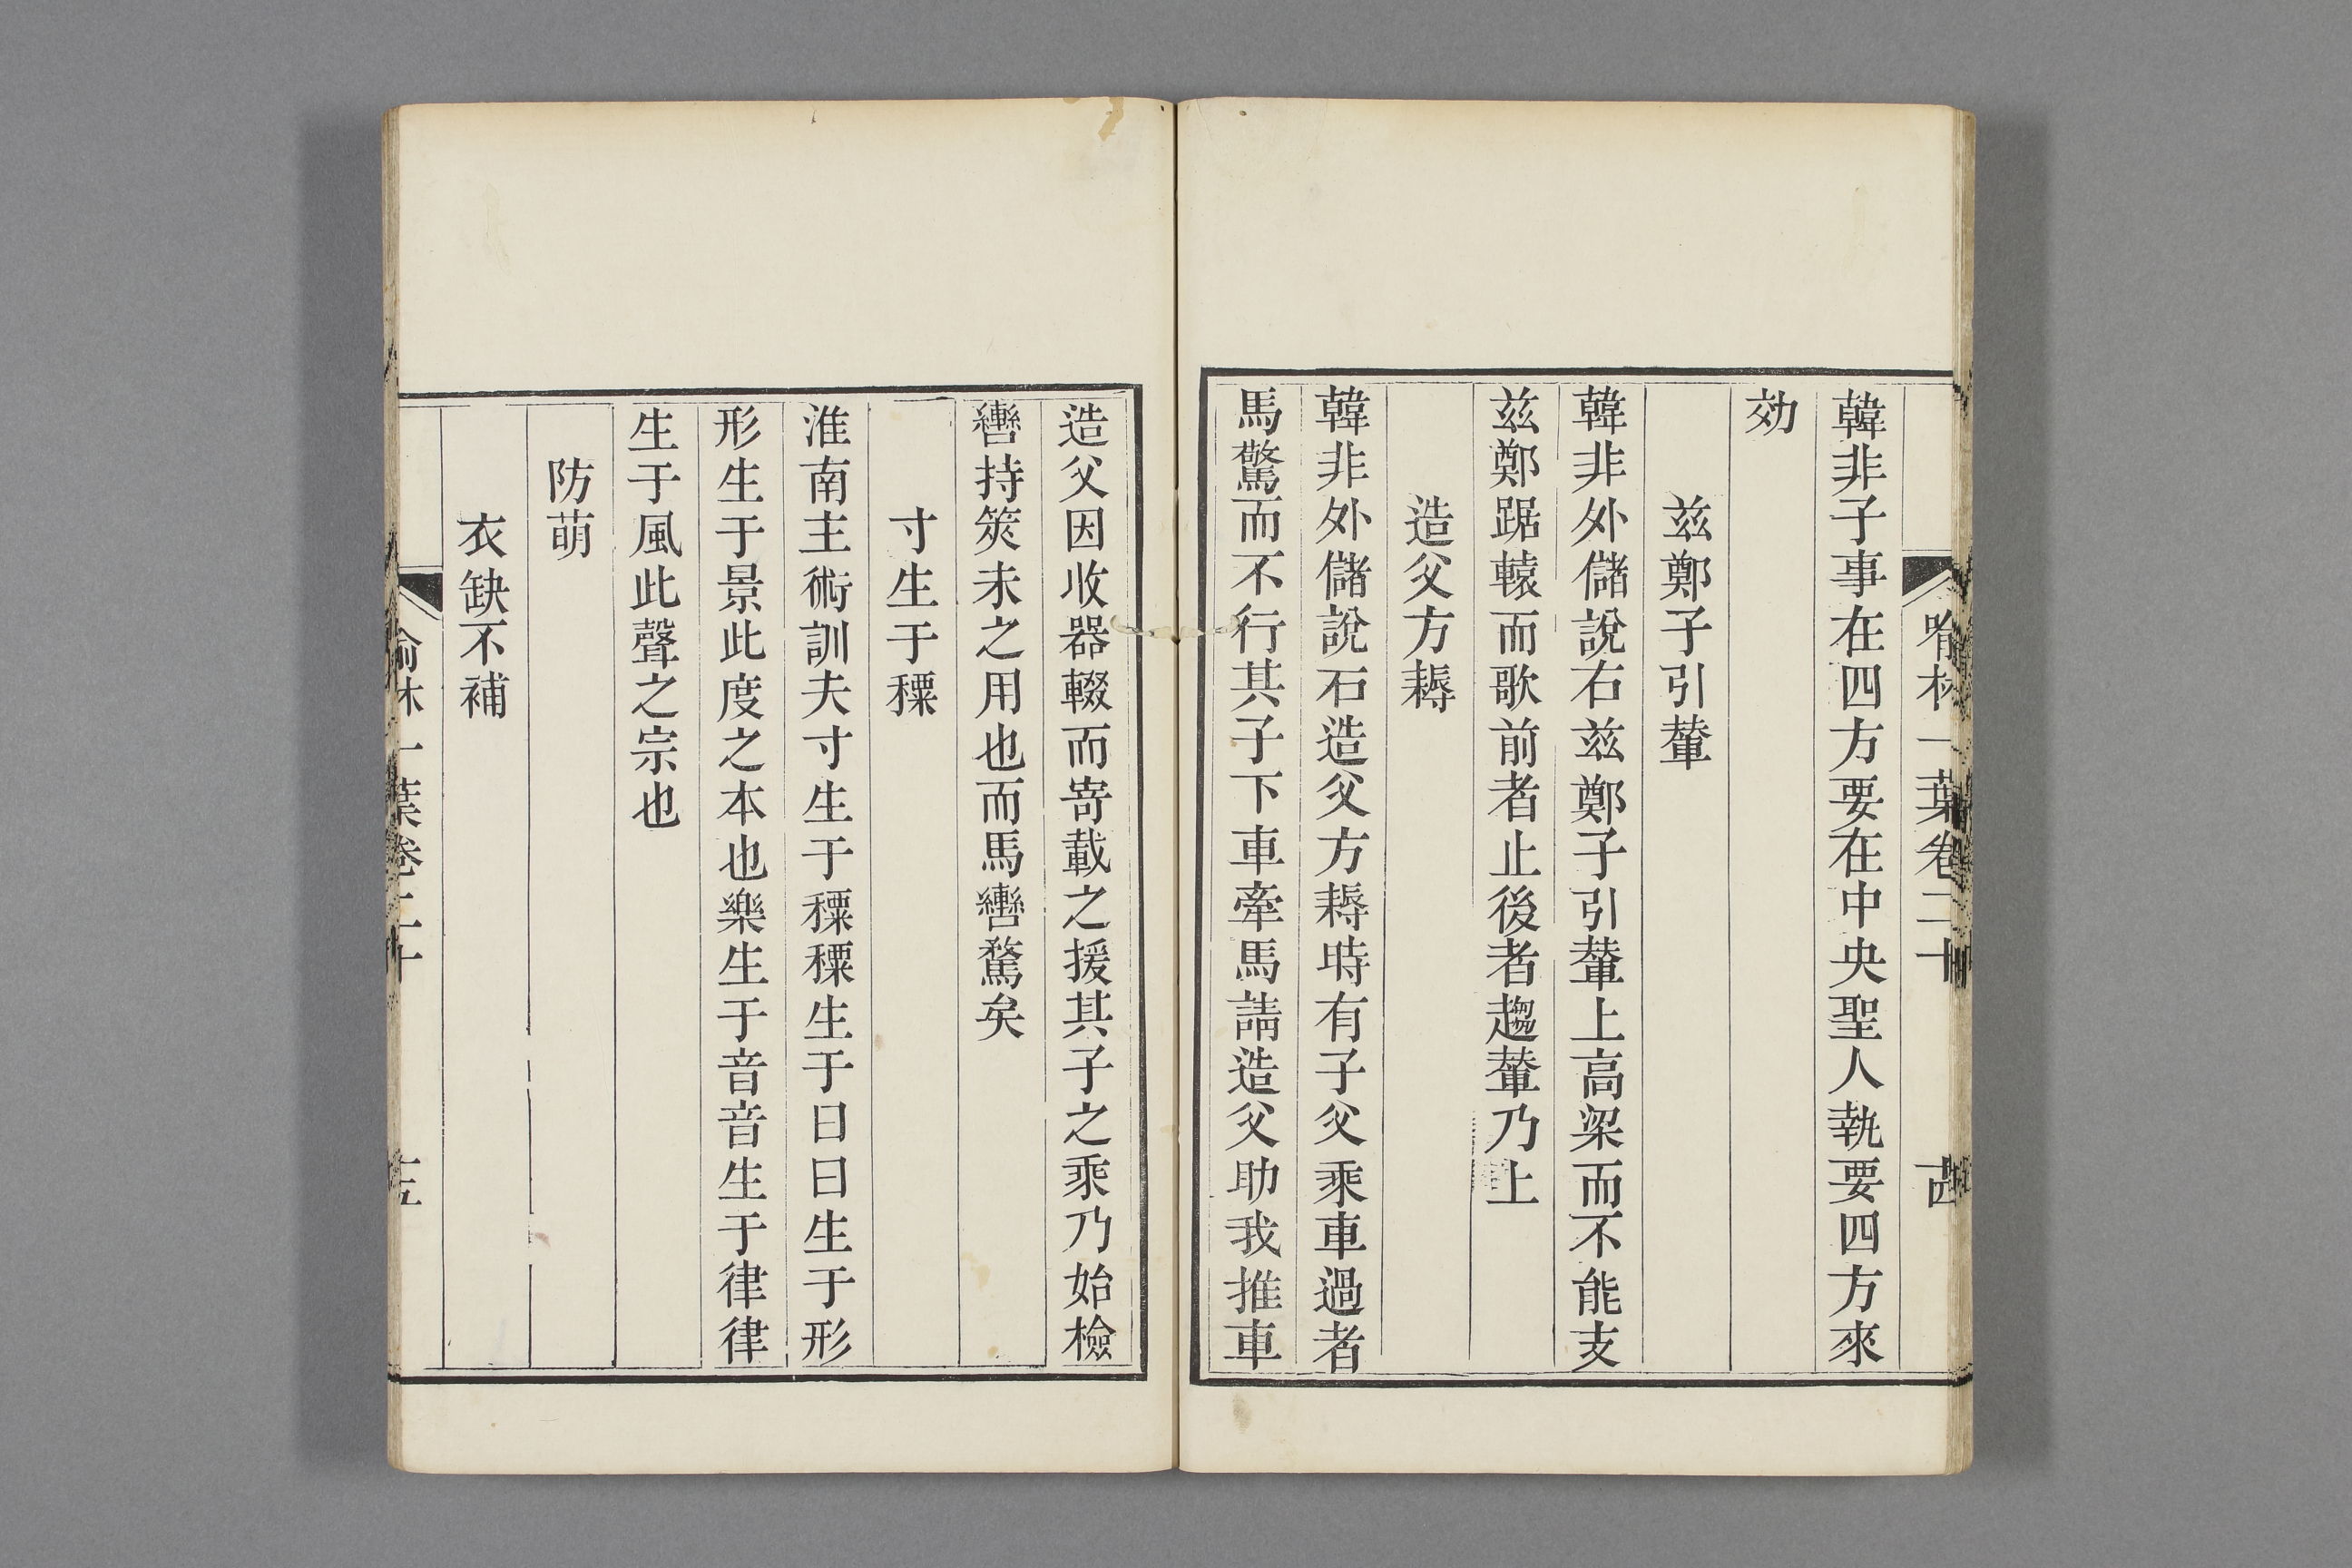 喻林一葉卷二十 十四
韓非子事在四方要在中央聖人執要四方來
効
茲鄭子引輦
韓非外儲說右茲鄭子引輦上高梁而不能支
茲鄭踞轅而歌前者止後者趨輦乃上
造父方耨
韓非外儲說石造父方耨時有子父乘車過者
馬驚而不行其子下車牽馬請造父助我推車
造父因收器輟而寄載之援其子之乘乃始檢
轡持筴未之用也而馬轡騖矣
寸生于𥟜
淮南主術訓夫寸生于𥟜𥟜生于日日生于形
形生于景此度之本也樂生于音音生于律律
生于風此聲之宗也
防萌
衣缺不補
喻林一葉卷二十 十五